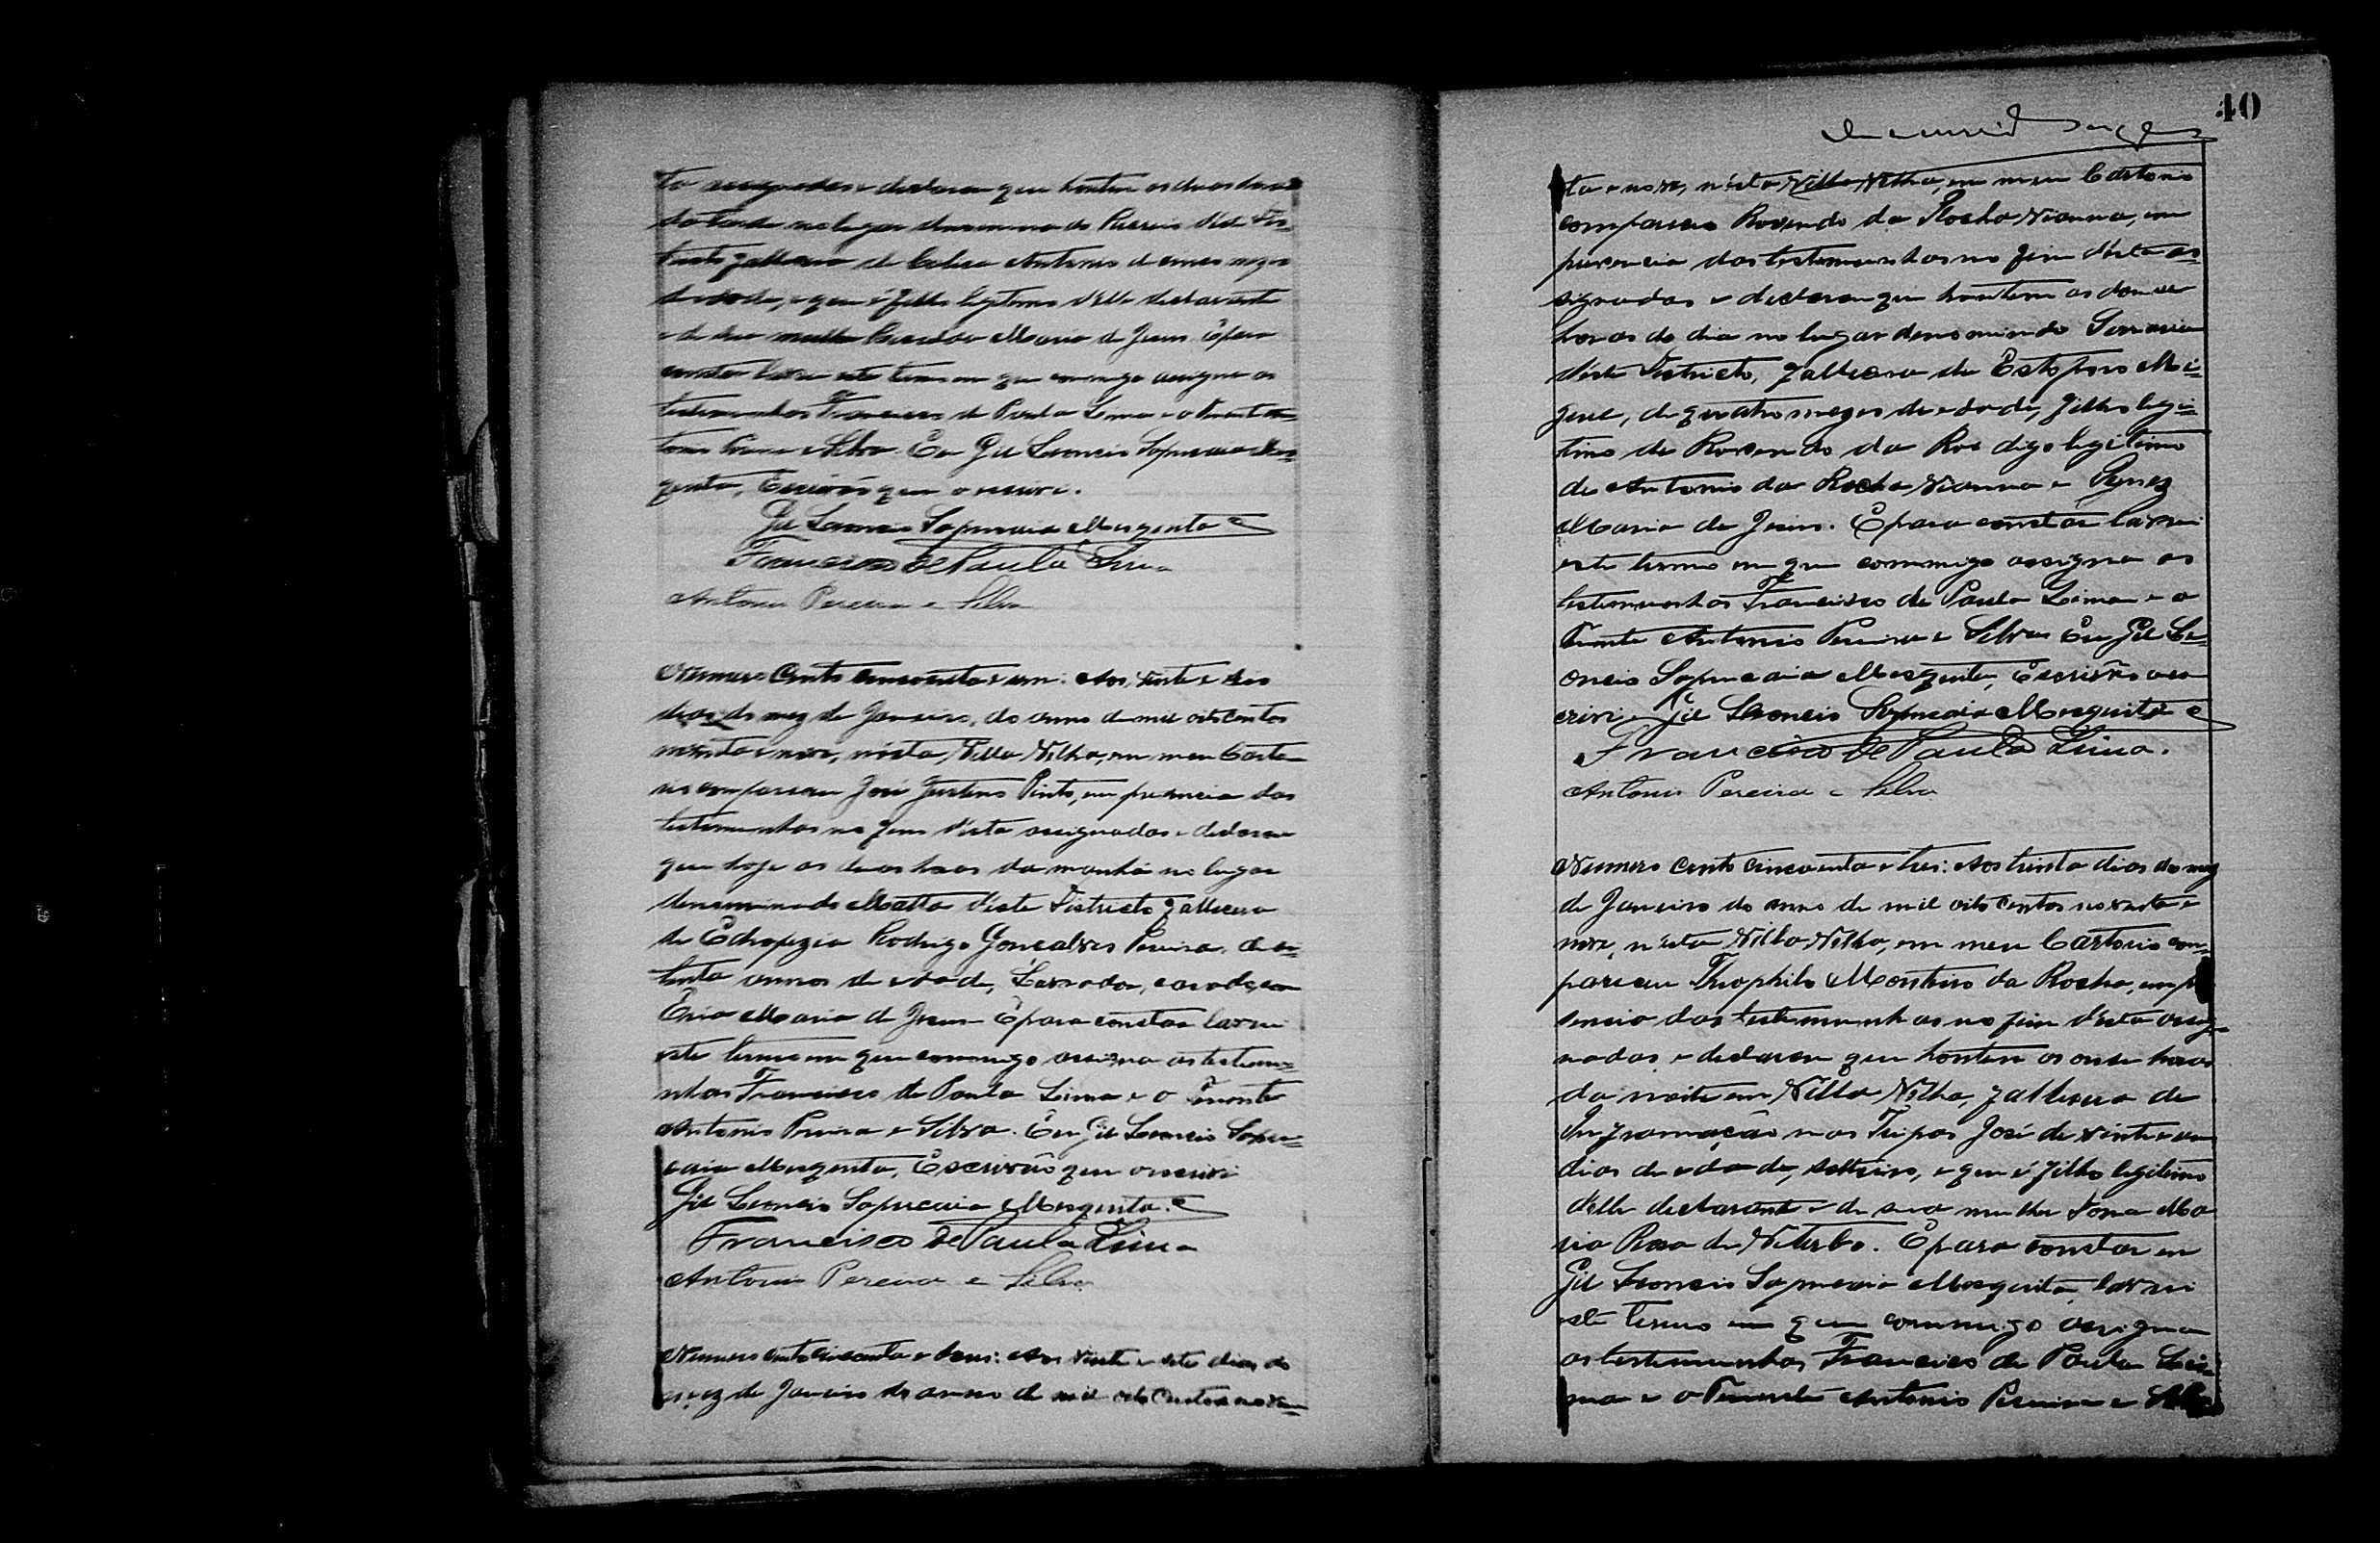 ta assignadas e declarou que hontem as duas horas
da tarde no lugar denominado d'este Dis-
tricto falleceu de Colica Antonio de mezes
de edade, e que é filho legitimo d'elle declarante
e de sua mulher Maria de Jesus. E para
constar lavrei este termo em que commigo assigna as
testemunhas Francisco de Paula Lima e o Tenente An-
tonio Pereira e Silva. Eu Gil Leoncio Sapucaia Mes-
quita, Escrivão que o escrevi.
Gil Leoncio Sapucaia Mesquita
Francisco de Paula Lima
Antonio Pereira e Silva
Numero Cento cincoenta e um: Aos vinte e seis
dias do mez de Janeiro, do anno de mil oitocentos
noventa e nove, n'esta Villa Velha, em meu Carto-
rio compareceu José Justino Pinto, em presencia das
testemunhas no fim d'esta assignadas e declarou
que hoje as duas horas da manhã no lugar
denominado Matta d'este Districto falleceu
de Edropezia Rodrigo Gonçalves Pereira, de oi-
tenta annos de edade, Lavrador, casado, com
Maria de Jesus. E para constar lavrei
este termo em que commigo assigna as testemu-
nhas Francisco de Paula Lima e o Tenente
Antonio Pereira e Silva. Eu Gil Leoncio Sapu-
caia Mesquita, Escrivão que o escrevi
Gil Leoncio Sapucaia Mesquita.
Francisco de Paula Lima
Antonio Pereira e Silva
Numero cento cincoenta e dous: Aos vinte e sete dias do
mez de Janeiro do anno de mil oito Centos noven-
40
ta e nove, n'esta Villa Velha, em meu Cartorio
compareceu Rosendo da Rocha Vianna, em
presencia das testemunhas no fim d'esta as-
signadas e declarou que hontem as doze
horas do dia no lugar denominado Serraria
d'este Districto, falleceu de Estoporo Mi-
guel, de quatro mezes de edade, filho legi-
timo de Rosendo da Roc digo legitimo
de Antonio da Rocha Vianna e Ignez
Maria de Jesus. E para constar lavrei
este termo em que commigo assigna as
testemunhas Francisco de Paula Lima e o
Tenente Antonio Pereira e Silva. Eu Gil Le-
oncio Sapucaia Mesquita, Escrivão o es-
crevi. Gil Leoncio Sapucaia Mesquita
Francisco de Paula Lima.
Antonio Pereira e Silva
Numero Cento Cincoenta e tres: Aos trinta dias do mez
de Janeiro do anno de mil oito Centos noventa e
nove, n'esta Villa Velha, em meu Cartorio com-
pareceu Theophilo Monteiro da Rocha, em pre
sencia das testemunhas no fim d'esta assig-
nadas, e declarou que hontem as onze horas
da noite em Villa Velha, falleceu de
Inframação nas Tripas José de vinte e um
dias de edade, solteiro, e que é filho legitimo
d'elle declarante e de sua mulher Dona Ma
ria Rosa de Viterbo. E para constar eu
Gil Leoncio Sapucaia Mesquita, lavrei
este termo em que commigo assigna
as testemunhas Francisco de Paula Li-
ma e o Tenente Antonio Pereira e Silva